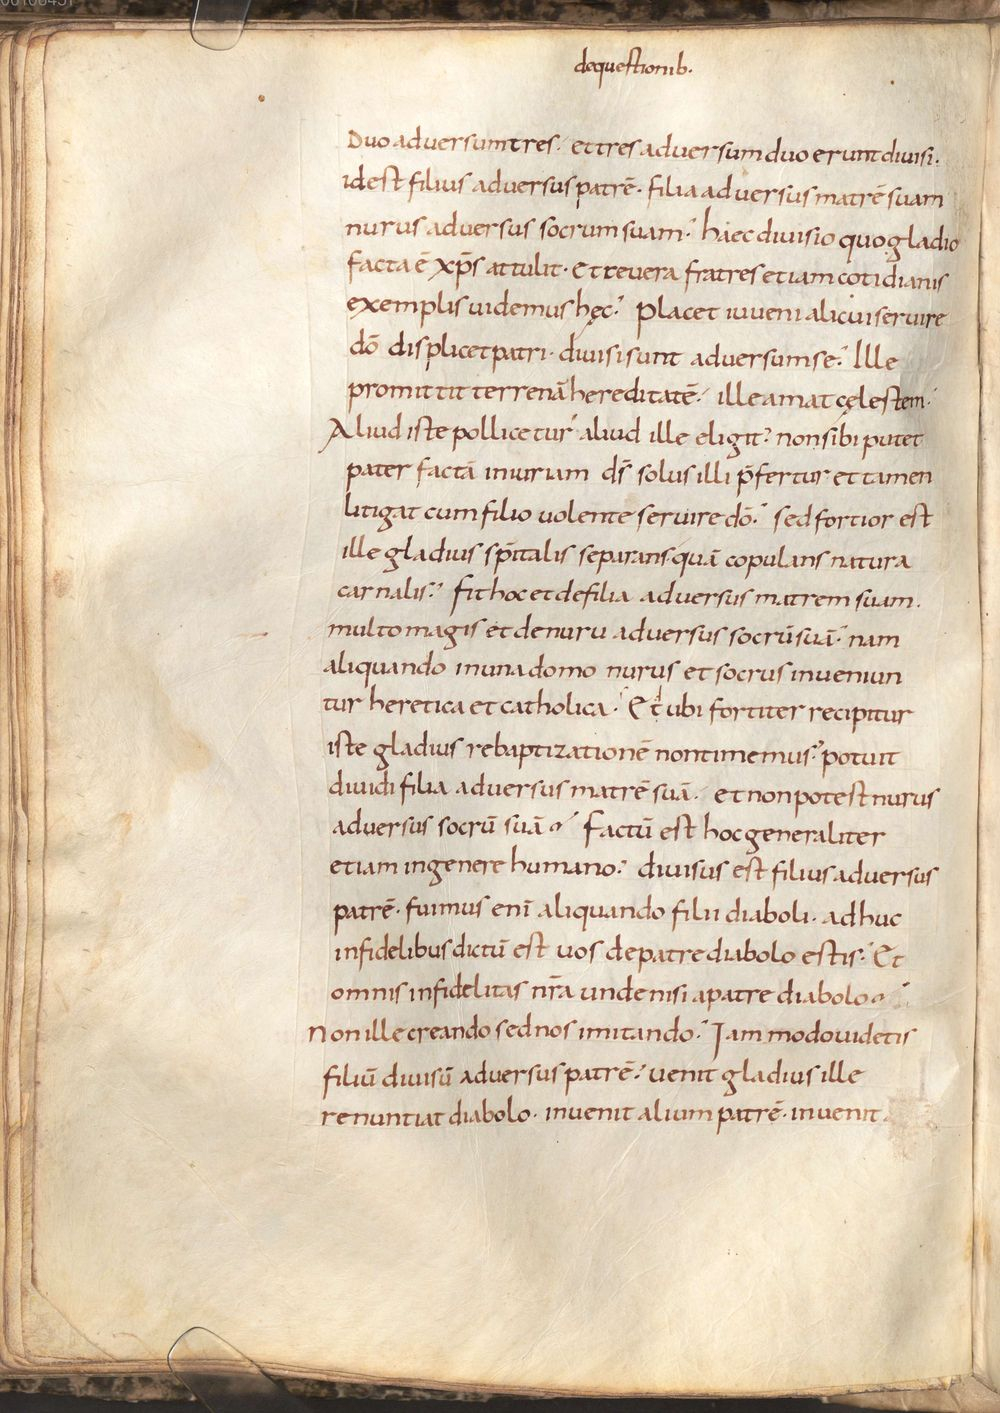 dequestionib.
Duo aduersum tres. et tres aduersum duo erunt diuisi.
id est filius aduersus patrē. filia aduersus matrē suam
nurus aduersus socrum suam. haec diuisio quo gladio
facta ē xp̄s attulit. Et reuera fratres etiam cotidianis
exemplis uidemus hęc. Placet iuueni alicui seruire
dō displicet patri. diuisi sunt aduersum se. Ille
promittit terrenā hereditatē. ille amat cęlestem.
Aliud iste pollicetur aliud ille eligit. non sibi putet
pater factā iniuriam ds̄ solus illi p̄fertur et tamen
litigat cum filio uolente seruire dō. sed fortior est
ille gladius sp̄italis separans. quā copulans natura
carnalis. fit hoc et de filia aduersus matrem suam.
multo magis et de nuru aduersus socrū suā. nam
aliquando in una domo nurus et socrus inueniun
tur heretica et catholica. Et ubi fortiter recipitur
iste gladius rebaptizationē non timemus. potuit
diuidi filia aduersus matrē suā. et non potest nurus
aduersus socrū suā. Factū est hoc generaliter
etiam in genere humano. diuisus est filius aduersus
patrē. fuimus enī aliquando filii diaboli. adhuc
infidelibus dictū est uos de patre diabolo estis. Et
omnis infidelitas nr̄a unde nisi a patre diabolo.
Non ille creando sed nos imitando. Iam modo uidetis
filiū diuisū aduersus patrē. uenit gladius ille
renuntiat diabolo. inuenit alium patrē. inuenit